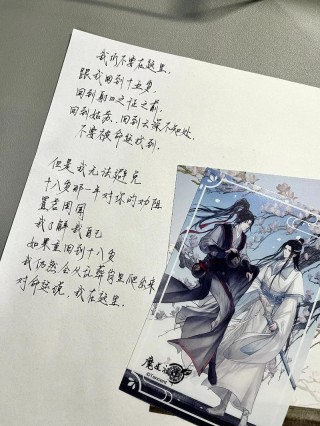 我们不要在这里，
跟我回到十五岁，
回到射日之征之前，
回到姑苏，回到云深不知处，
不要被命运找到。
但是我无法避免
十八岁那一年对你的劝阻
置若罔闻
我了解我自己
如果重回到十八岁
我仍然会从乱葬岗里爬出来
对命运说，我在这里。
魔道祖师
©Tencent